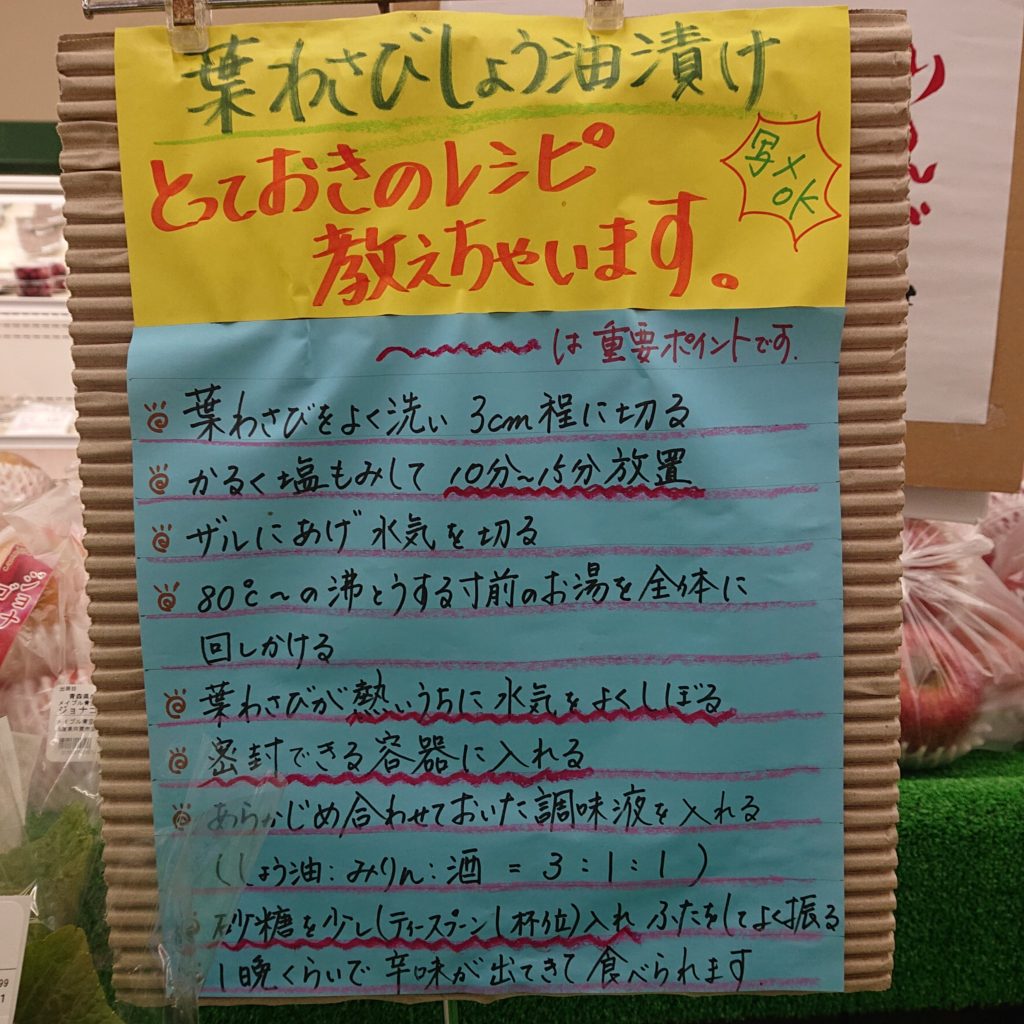 葉わさびしょう油漬け
とっておきのレシピ
教えちゃいます。
写メ
OK
は重要ポイントです.
葉わさびをよく洗い 3cm程に切る
かるく塩もみして 10分~15分放置
ザルにあげ 水気を切る
80℃~の沸とうする寸前のお湯を全体に
回しかける
葉わさびが熱いうちに水気をよくしぼる
密封できる容器に入れる
あらかじめ合わせておいた調味液を入れる
(しょう油:みりん:酒 = 3:1:1)
砂糖を少し(ティースプーン1杯位)入れ ふたをしてよく振る
1晩くらいで辛味が出てきて食べられます.
出荷日
青森県
ジョナゴ